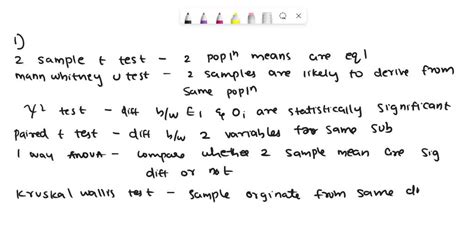 1)
2 sample t test - 2 popln means are eql
mann whitney u test - 2 samples are likely to derive from
same popln
χ2 test - diff b/w Ei & Oi are statistically significant
paired t test - diff b/w 2 variables for same sub
1 way ANOVA - compare whether 2 sample mean are sig
diff or not
Kruskal wallis test - sample orginate from same di